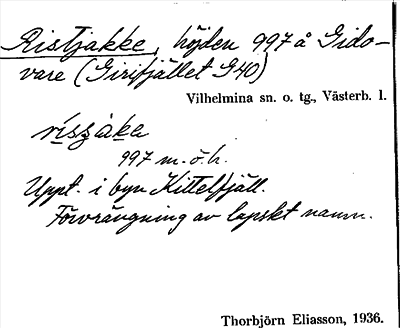 Ristjakke, höjden 997 å Gido-
vare (Girifjället G40)
Vilhelmina sn. o. tg., Västerb. l.
rísʒàka
997 m.ö.h.
Uppt. i byn Kittelfjäll.
Förvrängning av lapskt namn.
Thorbjörn Eliasson, 1936.